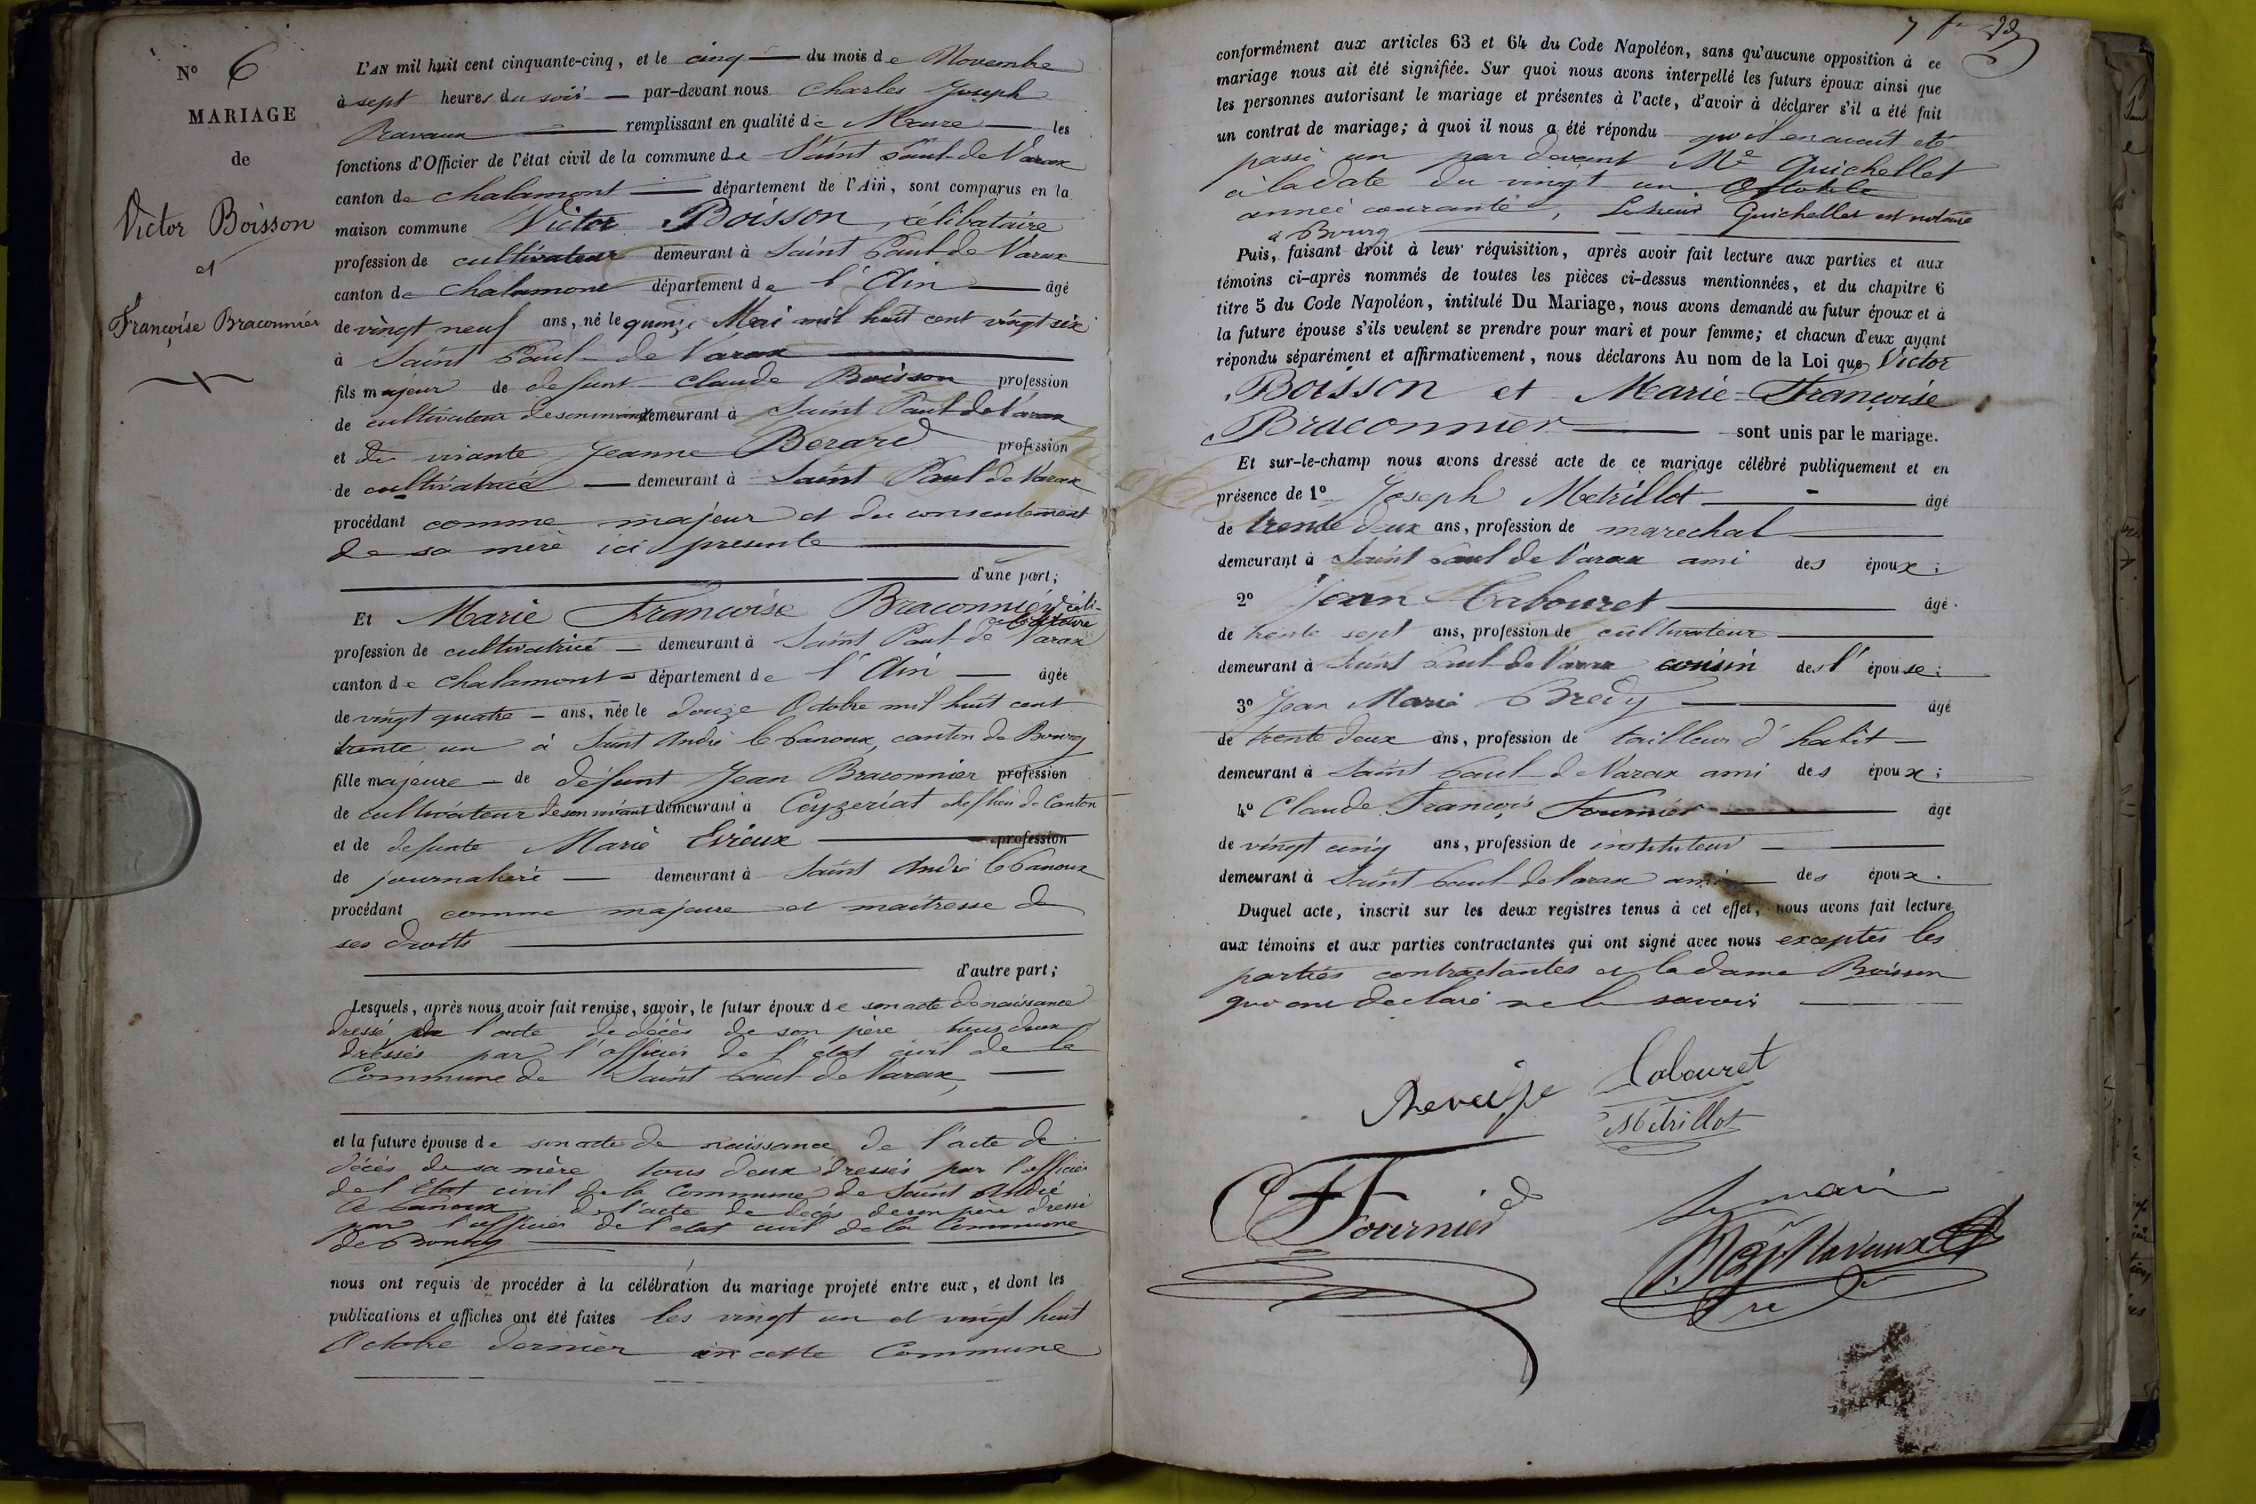 N° 6
MARIAGE
de
Victor Boisson
et
Françoise Braconnier
L'AN mil huit cent cinquante-cinq, et le cinq du mois de Novembre
à sept heures du soir par-devant nous Charles Joseph
Ravaux remplissant en qualité de Maire les
fonctions d'Officier de l'état civil de la commune de Saint Paul de Varax
canton de Chalamont département de l'Ain, sont comparus en la
maison commune Victor Boisson, célibataire
profession de cultivateur demeurant à Saint Paul de Varax
canton de Chalamont département de l'Ain âgé
de vingt neuf ans, né le quinze Mai mil huit cent vingt six
à Saint Paul de Varax
fils majeur de defunt Claude Boisson profession
de cultivateur de son vivant demeurant à Saint Paul de Varax
et de vivante Jeanne Berard profession
de cultivatrice demeurant à Saint Paul de Varax
procédant comme majeur et du consentement
de sa mère ici presente
d'une part;
Et Marie Françoise Braconnier, céli-
bataire
profession de cultivatrice demeurant à Saint Paul de Varax
canton de Chalamont département de l'Ain âgée
de vingt quatre ans, née le douze Octobre mil huit cent
trente un à Saint André le Panoux, canton de Bourg
fille majeure de défunt Jean Braconnier profession
de cultivateur de son vivant demeurant à Ceyzeriat chef lieu de Canton
et de defunte Marie Evieux profession
de journalière demeurant à Saint André le Panoux
procédant comme majeure et maitresse de
ses droits
d'autre part;
Lesquels, après nous avoir fait remise, savoir, le futur époux de son acte de naissance
dressé de l'acte de décès de son père tous deux
dréssés par l'officier de l'etat civil de la
Commune de Saint Paul de Varax,
et la future épouse de son acte de naissance de l'acte de
décès de sa mère tous deux dressés par l'officier
de l'Etat civil de la Commune de Saint André
le Panoux de l'acte de decès de son père dressé
par l'officier de l'etat civil de la Commune
de
nous ont requis de procéder à la célébration du mariage projeté entre eux, et dont les
publications et affiches ont été faites les vingt un et vingt huit
Octobre dernier en cette Commune
conformément aux articles 63 et 64 du Code Napoléon, sans qu'aucune opposition à ce
mariage nous ait été signifiée. Sur quoi nous avons interpellé les futurs époux ainsi que
les personnes autorisant le mariage et présentes à l'acte, d'avoir à déclarer s'il a été fait
un contrat de mariage; à quoi il nous a été répondu qu'il en avait été
passé un par devant Me Guichellet
à la date du vingt un Octobre
année courante, Le sieur Guichellet est notaire
à Bourg
Puis, faisant droit à leur réquisition, après avoir fait lecture aux parties et aux
témoins ci-après nommés de toutes les pièces ci-dessus mentionnées, et du chapitre 6
titre 5 du Code Napoléon, intitulé Du Mariage, nous avons demandé au futur époux et à
la future épouse s'ils veulent se prendre pour mari et pour femme; et chacun d'eux ayant
répondu séparément et affirmativement, nous déclarons Au nom de la Loi que Victor
Boisson et Marie-Françoise
Braconnier sont unis par le mariage.
Et sur-le-champ nous avons dressé acte de ce mariage célébré publiquement et en
présence de 1° Joseph Metrillot âgé
de trente deux ans, profession de marechal
demeurant à Saint Paul de Varax ami des époux;
2° Jean Cabouret âgé
de trente sept ans, profession de cultivateur
demeurant à Saint Paul de Varax cousin de l'épouse;
3° Jean Marie âgé
de trente deux ans, profession de tailleur d'habit
demeurant à Saint Paul de Varax ami des époux;
4° Claude François Fournier âgé
de vingt cinq ans, profession de instituteur
demeurant à Saint Paul de Varax ami des époux.
Duquel acte, inscrit sur les deux registres tenus à cet effet, nous avons fait lecture
aux témoins et aux parties contractantes qui ont signé avec nous exceptés les
parties contractantes et la dame Boisson
qui ont declaré ne le savoir
Cabouret
Metrillot
CF Fournier
Le maire
Ravaux